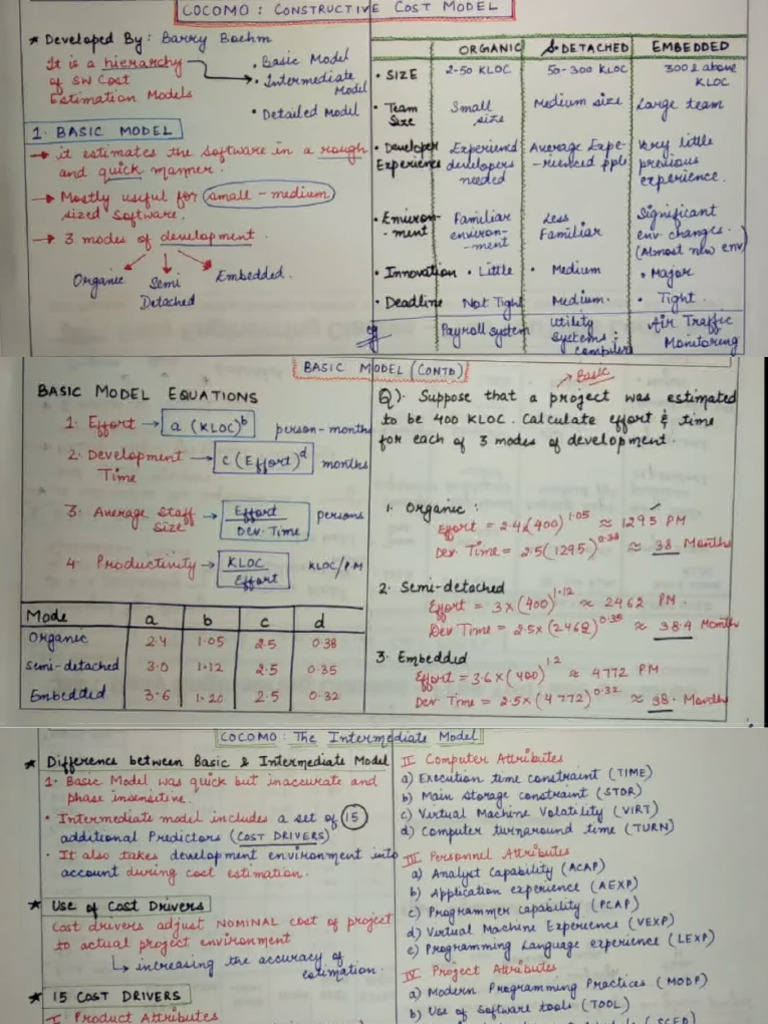 COCOMO : CONSTRUCTIVE COST MODEL
★ Developed By : Barry Boehm
It is a hierarchy
of SW Cost
Estimation Models
• Basic Model
• Intermediate Model
• Detailed Model
1. BASIC MODEL
→ it estimates the software in a rough
and quick manner.
→ Mostly useful for small-medium
sized software.
→ 3 modes of development.
Organic Semi Detached Embedded.
ORGANIC S. DETACHED EMBEDDED
• SIZE 2-50 KLOC 50-300 KLOC 300 & above KLOC
• Team Size Small size Medium size Large team
• Developer Experience Experienced developers needed Average Expe-rienced pple. Very little previous experience.
• Environ-ment Familiar environ-ment Less Familiar Significant env. changes. (Almost new env)
• Innovation • Little • Medium • Major
• Deadline Not Tight Medium. • Tight.
eg Payroll system Utility Systems : computers Air Traffic Monitoring
BASIC MODEL (CONTD)
BASIC MODEL EQUATIONS
1. Effort → a (KLOC)^b person-months
2. Development Time → c (Effort)^d months
3. Average Staff Size → Effort / Dev. Time persons
4. Productivity → KLOC / Effort KLOC/P.M
Mode a b c d
Organic 2.4 1.05 2.5 0.38
Semi-detached 3.0 1.12 2.5 0.35
Embedded 3.6 1.20 2.5 0.32
→ Basic
Q). Suppose that a project was estimated
to be 400 KLOC. Calculate effort & time
for each of 3 modes of development.
1. Organic :
Effort = 2.4(400)^1.05 ≈ 1295 PM
Dev. Time = 2.5(1295)^0.38 ≈ 38 Months
2. Semi-detached
Effort = 3×(400)^1.12 ≈ 2462 PM.
Dev Time = 2.5×(2462)^0.35 ≈ 38.4 Months
3. Embedded
Effort = 3.6×(400)^1.2 ≈ 4772 PM
Dev. Time = 2.5×(4772)^0.32 ≈ 38. Months
COCOMO : The Intermediate Model
★ Difference between Basic & Intermediate Model
1. Basic Model was quick but inaccurate and
phase insensitive.
• Intermediate model includes a set of 15
additional Predictors (COST DRIVERS)
• It also takes development environment into
account during cost estimation.
★ Use of Cost Drivers
Cost drivers adjust NOMINAL cost of project
to actual project environment
↳ increasing the accuracy of
estimation.
★ 15 COST DRIVERS
I. Product Attributes
II Computer Attributes
a) Execution time constraint (TIME)
b) Main Storage constraint (STOR)
c) Virtual Machine Volatility (VIRT)
d) Computer turnaround time (TURN)
III Personnel Attributes
a) Analyst Capability (ACAP)
b) Application experience (AEXP)
c) Programmer capability (PCAP)
d) Virtual Machine Experience (VEXP)
e) Programming Language experience (LEXP)
IV Project Attributes
a) Modern Programming Practices (MODP)
b) Use of Software tools (TOOL)